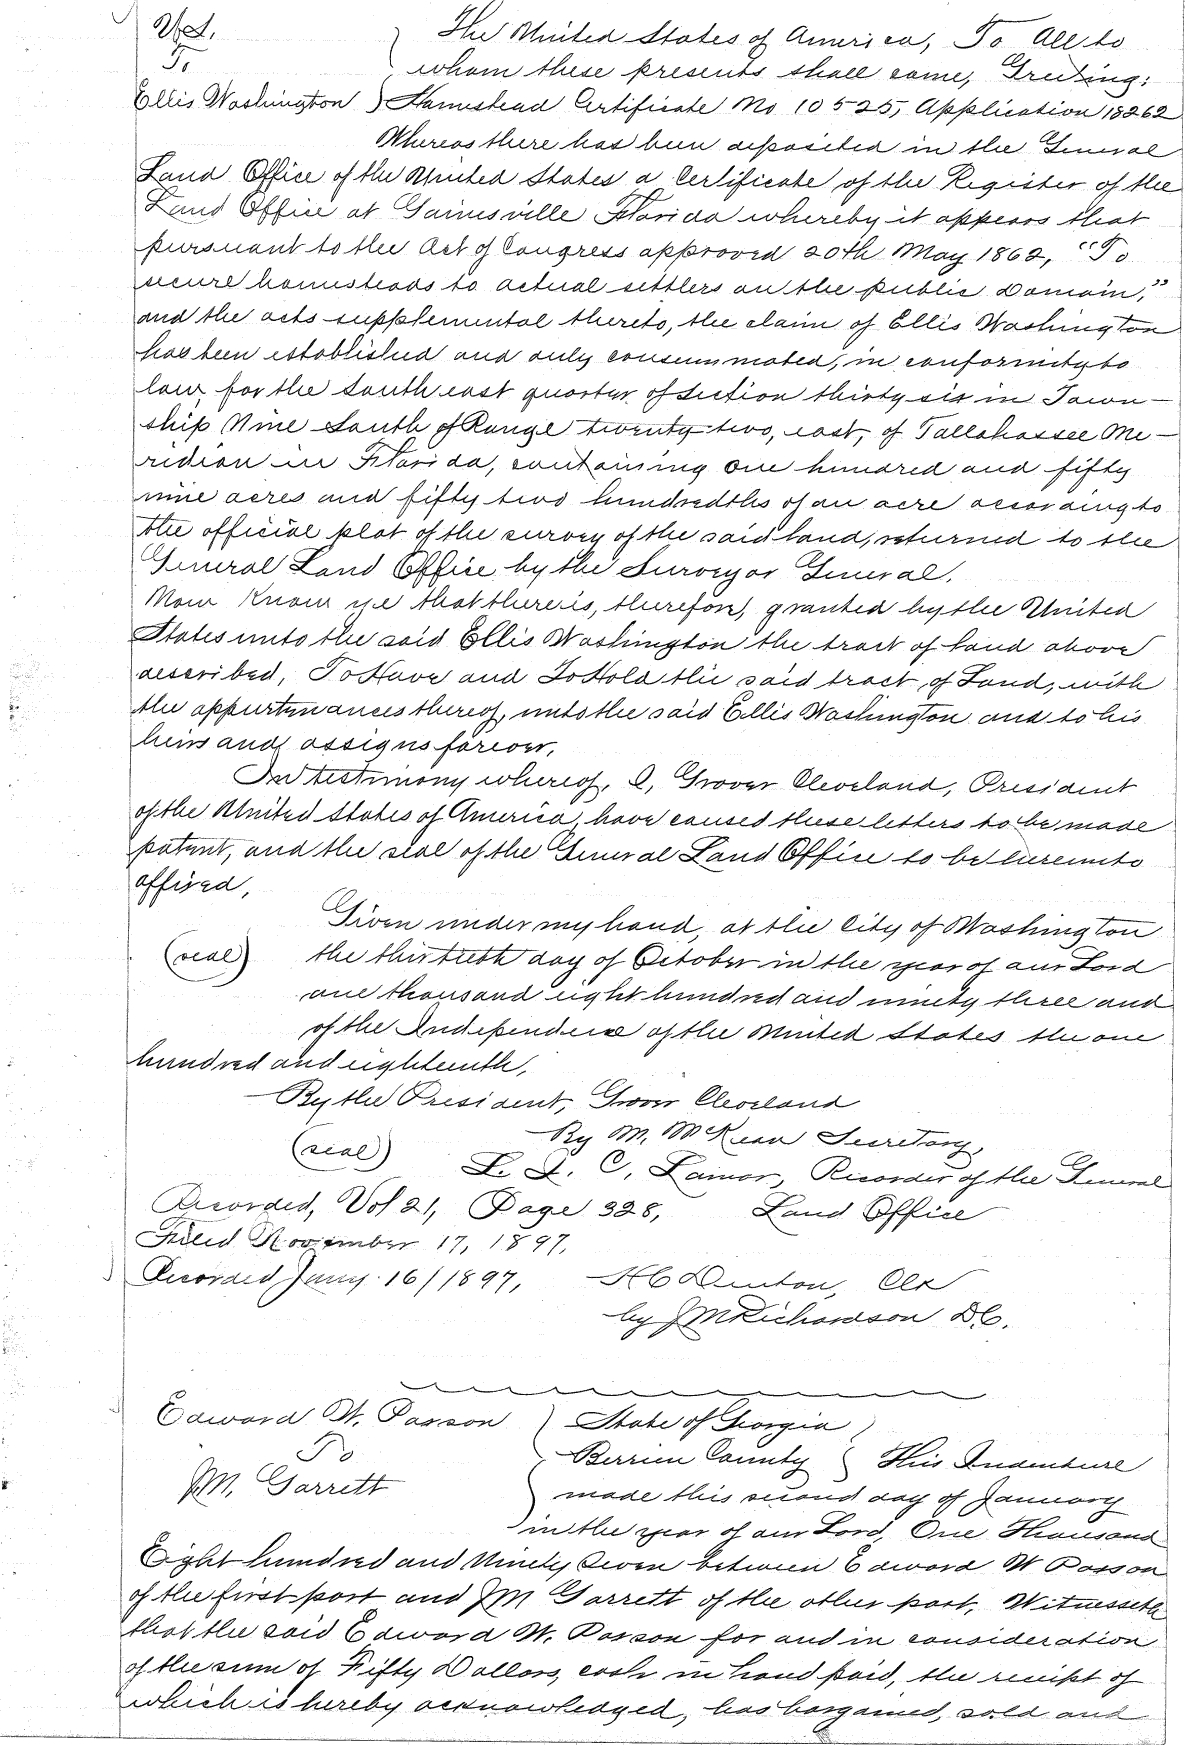 U.S.
To
Ellis Washington
The United States of America, To All to
whom these presents shall come, Greeting:
Homestead Certificate No 10525, Application 18262
Whereas there has been deposited in the General
Land Office of the United States a Certificate of the Register of the
Land Office at Gainesville Florida whereby it appears that
pursuant to the Act of Congress approved 20th May 1862, "To
secure homesteads to actual settlers on the public domain,"
and the acts supplemental thereto, the claim of Ellis Washington
has been established and duly consummated, in conformity to
law, for the South east quarter of Section thirty six in Town-
ship Nine South of Range twenty two, east, of Tallahassee Me-
ridian in Florida, containing one hundred and fifty
nine acres and fifty two hundredths of an acre according to
the official plat of the survey of the said land, returned to the
General Land Office by the Surveyor General.
Now know ye that there is, therefore, granted by the United
States unto the said Ellis Washington the tract of land above
described, To Have and To Hold the said tract of Land, with
the appurtenances thereof, unto the said Ellis Washington and to his
heirs and assigns forever,
In testimony whereof, I, Grover Cleveland, President
of the United States of America, have caused these letters to be made
patent, and the seal of the General Land Office to be hereunto
affixed,
Given under my hand, at the City of Washington
(seal) the thirtieth day of October in the year of our Lord
one thousand eight hundred and ninety three and
of the Independence of the United States the one
hundred and eighteenth,
By the President, Grover Cleveland
By M. McKean Secretary,
(seal) L. Q. C. Lamar, Recorder of the General
Recorded, Vol 21, Page 328, Land Office
Filed November 17, 1897,
Recorded Jany 16/1897, H C Denton, Clk
by J M Richardson D.C.
Edward W. Parson
To
J.M. Garrett
State of Georgia
Berrien County This Indenture
made this second day of January
in the year of our Lord One Thousand
Eight hundred and Ninety Seven between Edward W Parson
of the first part and J M Garrett of the other part, Witnesseth
that the said Edward W. Parson for and in consideration
of the sum of Fifty Dollars, cash in hand paid, the receipt of
which is hereby acknowledged, has bargained, sold and